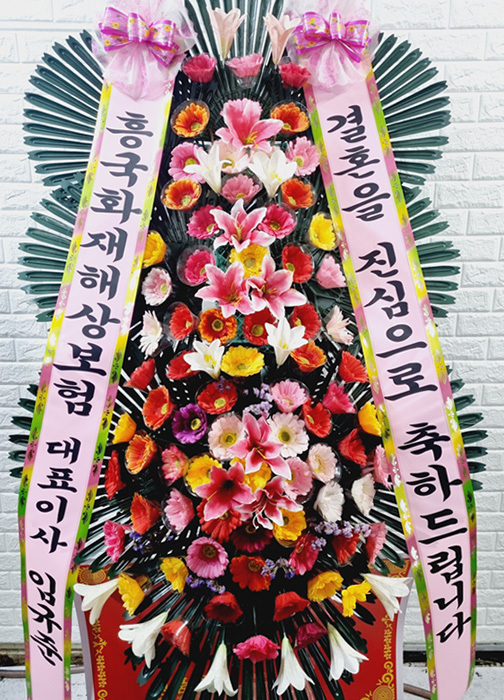 흥국화재해상보험 대표이사 임규준
결혼을 진심으로 축하드립니다